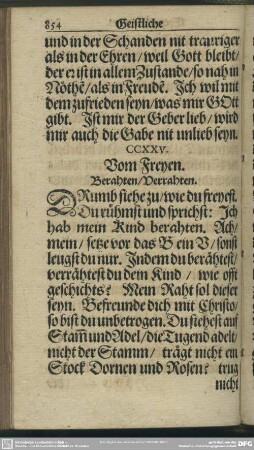 854 Geistliche
und in der Schanden nit trauriger
als in der Ehren / weil Gott bleibt /
der er ist in allem Zustande / so nah in
Nöthē / als in Freudē. Ich wil mit
dem zufrieden seyn / was mir GOtt
gibt. Ist mir der Geber lieb / wird
mir auch die Gabe nit unlieb seyn.
CCXXV.
Vom Freyen.
Berahten / Verrahten.
DRumb siehe zu / wie du freyest.
Du rühmst und sprichst: Ich
hab mein Kind berahten. Ach /
mein / setze vor das B ein V / sonst
leugst du nur. Indem du berähtest /
verrähtest du dem Kind / wie offt
geschichts? Mein Raht sol dieser
seyn. Befreunde dich mit Christo /
so bist du unbetrogen. Du siehest auf
Stam̄ und Adel / die Tugend adelt /
nicht der Stamm / trägt nicht ein
Stock Dornen und Rosen? trug
nicht
DFG